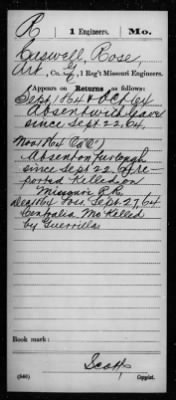 R | 1 Engineers. | Mo.
Caswell Rose,
Art, Co. , 1 Reg't Missouri Engineers.
Appears on Returns as follows:
Sept 1864 & Oct 64
Absent with leave
since Sept 22, 64,
Nov 1864 (Co C)
Absent on furlough
since Sept 22 64 re-
ported Killed on
Missouri R.R.
Dec 1864 Sept 27, 64
Centralia Mo Killed
by Guerrillas
Book mark:
Scott
(546) Copyist.